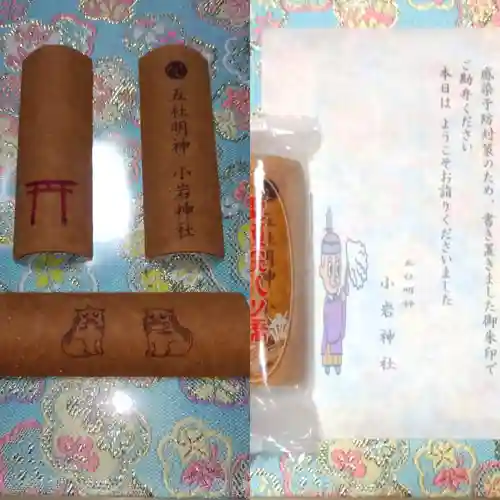 五社明神 小岩神社
五社明神
感染予防対策のため、書き置きました御朱印で
ご勘弁ください
本日は、ようこそお詣りくださいました
五社明神
小岩神社